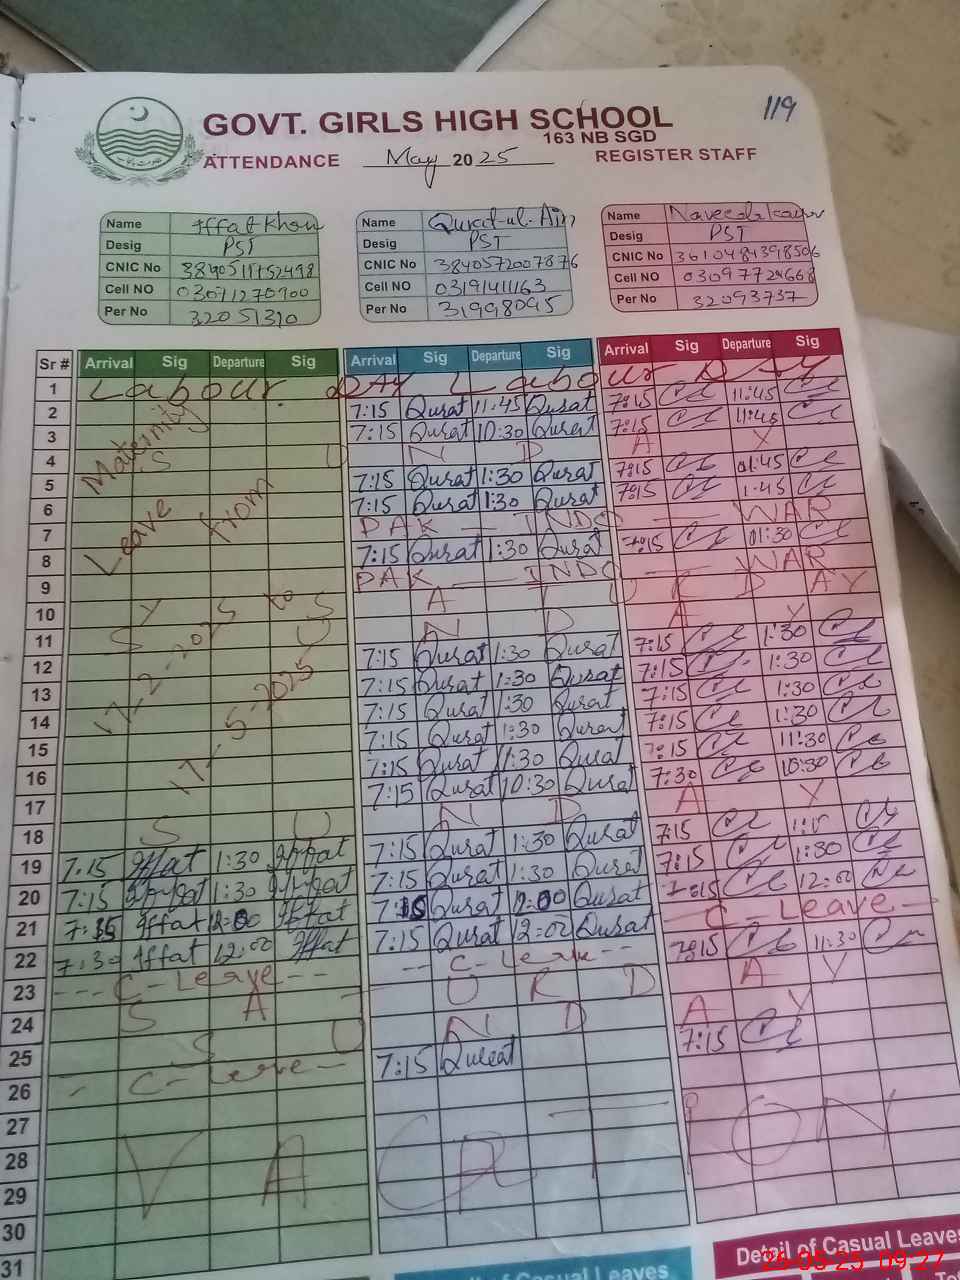 119
GOVT. GIRLS HIGH SCHOOL
163 NB SGD
ATTENDANCE May 2025 REGISTER STAFF
Name Iffat Khan
Desig PST
CNIC No
Cell NO 03071270900
Per No 32051310
Name Qurat-ul-Ain
Desig PST
CNIC No 3840572007876
Cell NO 03191411163
Per No 31998095
Name Naveeda
Desig PST
CNIC No 3610484398506
Cell NO 03097724668
Per No 32093737
Sr # Arrival Sig Departure Sig Arrival Sig Departure Sig Arrival Sig Departure Sig
1 Labour DAY Labour DAY
2 7:15 Qurat 11:45 Qurat 7:15 11:45
3 7:15 Qurat 10:30 Qurat 7:15 11:45
4 S U N D A Y
5 7:15 Qurat 1:30 Qurat 7:15 01:45
6 7:15 Qurat 1:30 Qurat 7:15 1:45
7 PAK — INDO — WAR
8 7:15 Qurat 1:30 Qurat 7:15 01:30
9 PAK — INDO — WAR
10 S A T U R D A Y
11 S U N D A Y
Maternity
Leave from
17-2-2025 to
17-5-2025
12 7:15 Qurat 1:30 Qurat 7:15 1:30
13 7:15 Qurat 1:30 Qurat 7:15 1:30
14 7:15 Qurat 1:30 Qurat 7:15 1:30
15 7:15 Qurat 1:30 Qurat 7:15 1:30
16 7:15 Qurat 11:30 Qurat 7:15 11:30
17 7:15 Qurat 10:30 Qurat 7:30 10:30
18 S U N D A Y
19 7:15 Iffat 1:30 Iffat 7:15 Qurat 1:30 Qurat 7:15
20 7:15 Iffat 1:30 Iffat 7:15 Qurat 1:30 Qurat 7:15 1:30
21 7:15 Iffat 12:00 Iffat 7:15 Qurat 12:00 Qurat 7:15 12:00
22 7:30 Iffat 12:00 Iffat 7:15 Qurat 12:00 Qurat C-Leave
23 C-Leave C-Leave 7:15 11:30
24 S A T U R D A Y
25 S U N D A Y
26 C-Leave 7:15 Qurat 7:15
27
28 VACATION
29
30
31
Detail of Casual Leaves
Detail of Casual Leaves
26-05-25 09:27